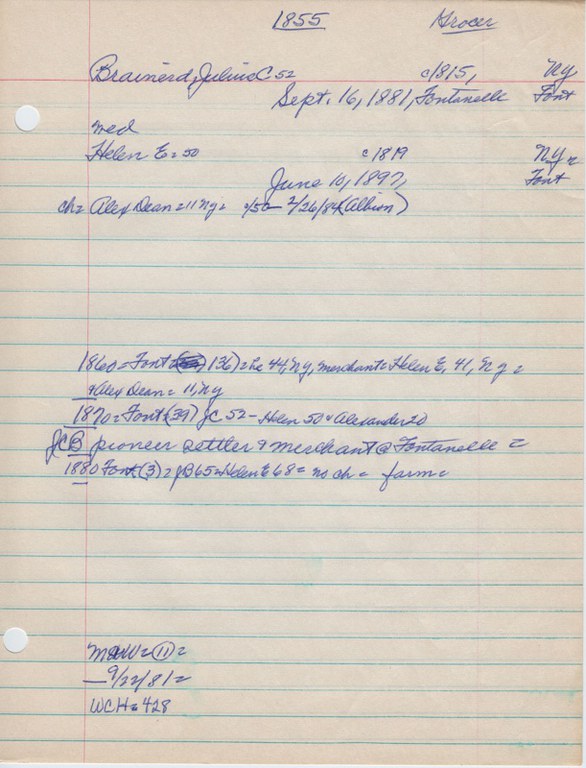 1855 Grocer
Brainerd, Julius C 52 c1815, NY
Sept. 16, 1881, Fontanelle Font
med
Helen E = 50 c1819 NY =
June 10, 1897, Font
ch = Alex Dean = 11 NY = 2/26/84 (Albion)
1860 = Font 136) = he 44, NY, merchant = Helen E, 41, NY =
& Alex Dean = 11, NY
1870 = Font (39) JC 52 - Helen 50 & Alexander 20
JCB pioneer settler & merchant @ Fontanelle =
1880 Font (3) = JB 65 = Helen E 68 = no ch = farm =
= (11) =
9/22/81 =
WCH = 428